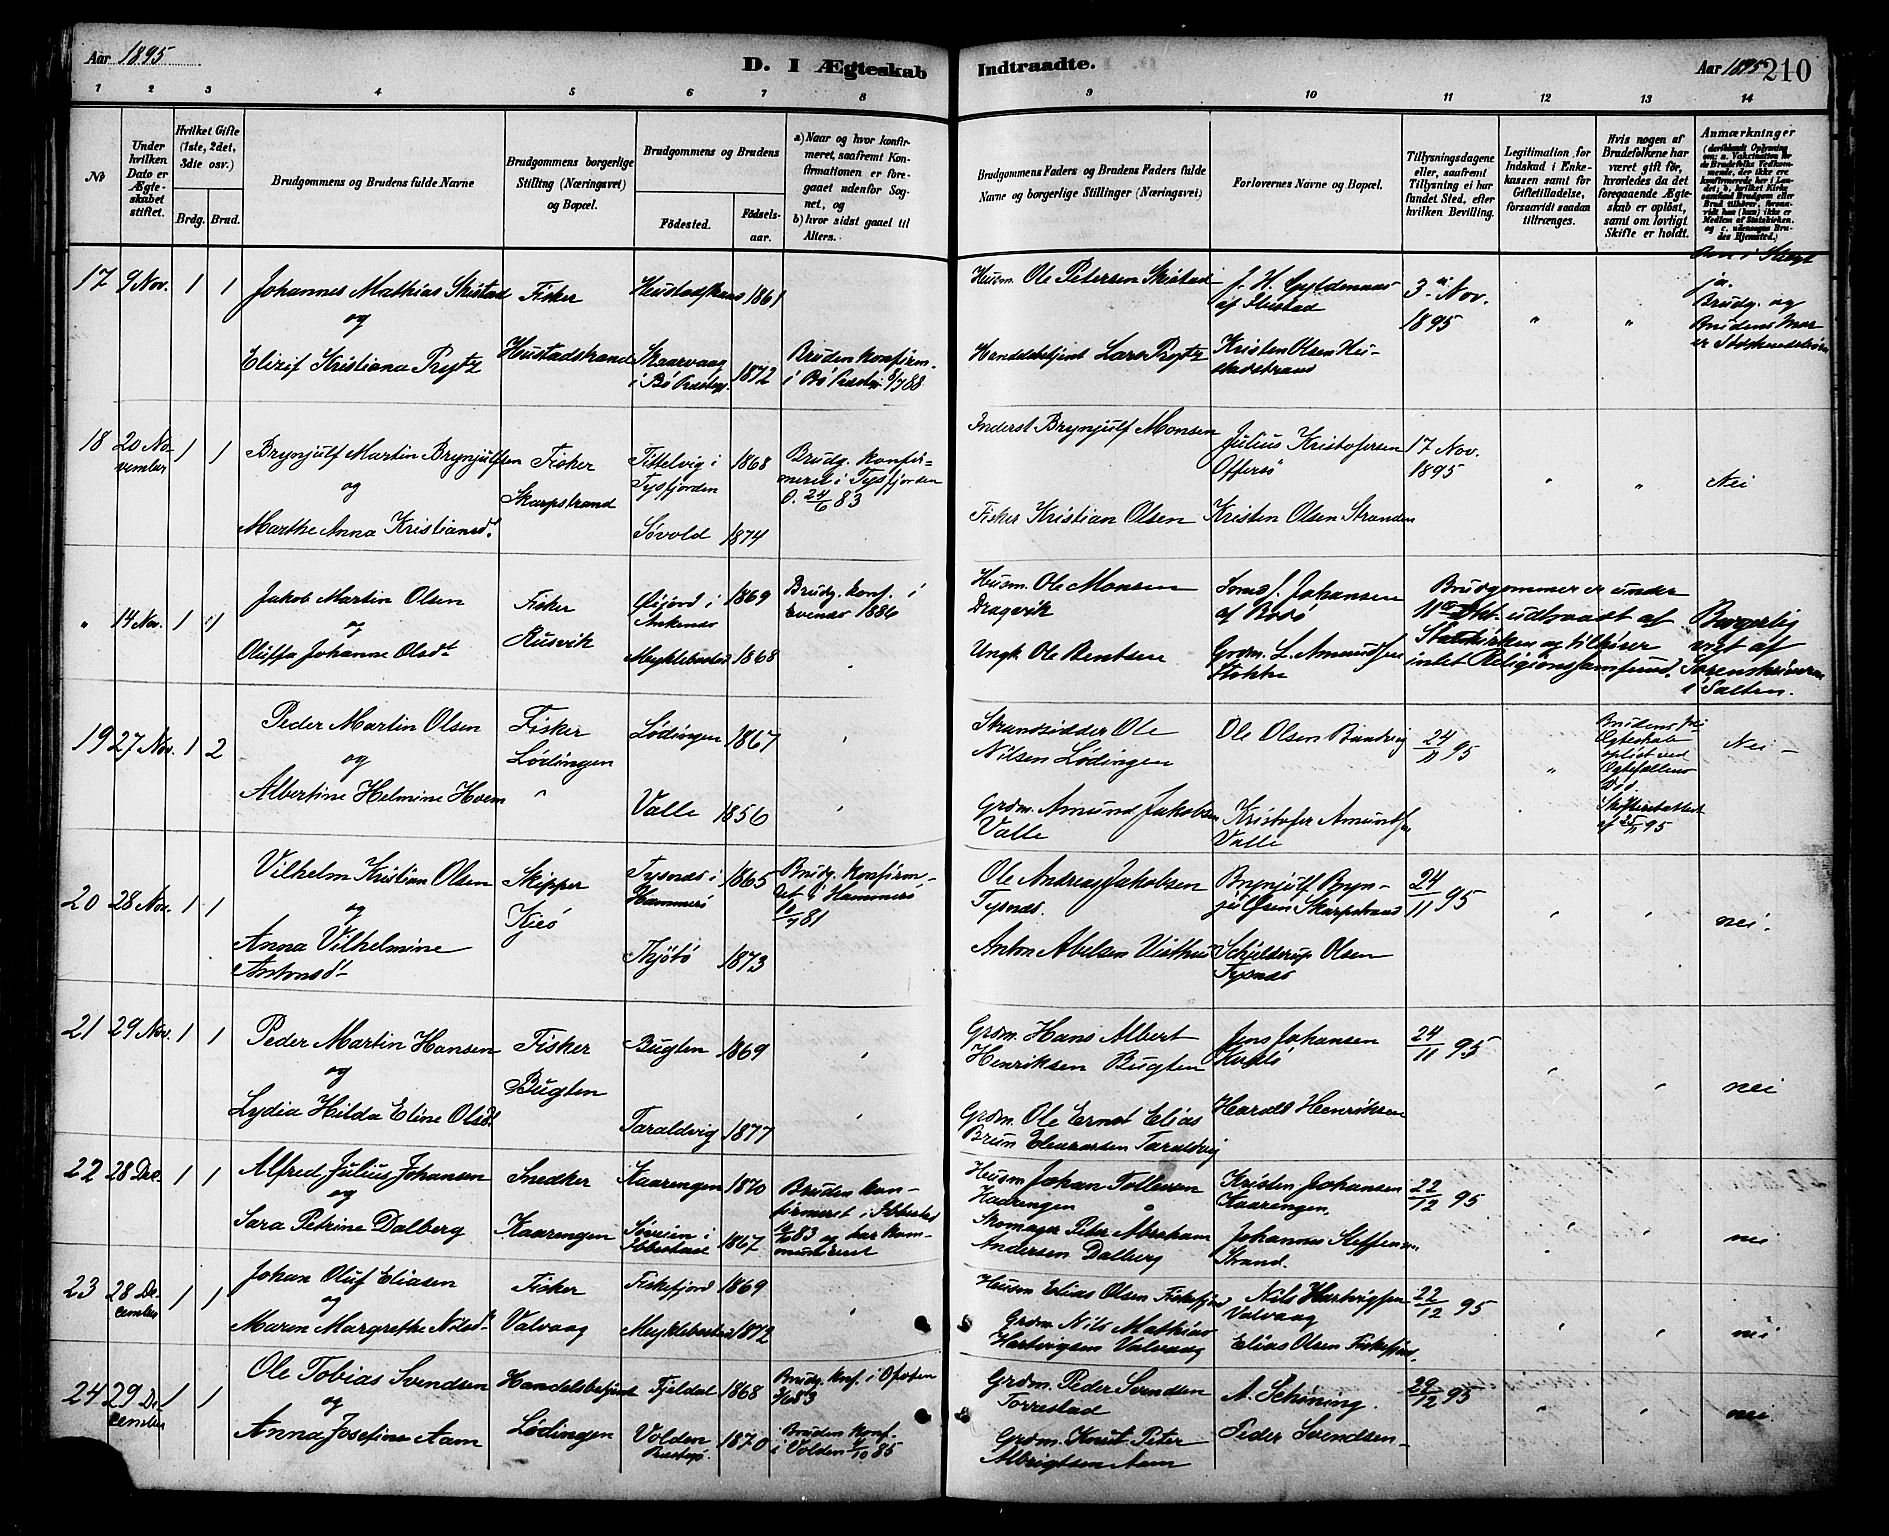 Aar 1895
D. I Ægteskab Indtraadte.
Aar 1895 210
1 2 3 4 5 6 7 8 9 10 11 12 13 14
No
Under hvilken Dato er Ægteskabet stiftet.
Hvilket Gifte (1ste, 2det, 3die osv.)
Brdg. Brud.
Brudgommens og Brudens fulde Navne
Brudgommens borgerlige Stilling (Næringsvei) og Bopæl.
Brudgommens og Brudens
Fødested.
Fødselsaar.
a) Naar og hvor konfirmeret, saafremt Konfirmationen er foregaaet udenfor Sognet, og
b) hvor sidst gaaet til Alters.
Brudgommens Faders og Brudens Faders fulde Navne og borgerlige Stillinger (Næringsvei)
Forlovernes Navne og Bopæl.
Tillysningsdagene eller, saafremt Tillysning ei har fundet Sted, efter hvilken Bevilling.
Legitimation for Indskud i Enkekassen samt for Giftetilladelse, forsaavidt saadan tiltrænges.
Hvis nogen af Brudefolkene har været gift før, hvorledes da det foregaaende Ægteskab er opløst, samt om lovligt Skifte er holdt.
Anmærkninger
17 9 Nov. 1 1
Johannes Mathias Skistad
og
Elizif Kristiana Prytz
Fisker
Hustadstrand
1861
Skaarvaag
i Bø Præstegj. 1872
Bruden konfirm.
i Bø Præstegj. 8/7 88
Husm. Ole Petersen Skistad
Handelsbetjent Lars Prytz
J. H. Gyldenaas
af Ibestad
Kristen Olsen Hustadstrand
3. Nov.
1895
ja.
Brudg. og
Brudens Mor
18 20 November 1 1
Brynjulf Martin Brynjulfsen
og
Marthe Anna Kristiansd.
Fisker
Skarpstrand
Tittelvig i
Tysfjorden 1868
Søvold 1874
Brudg. konfirmeret i Tysfjorden
d. 24/6 83
Inderst Brynjulf Monsen
Fisker Kristian Olsen
Julius Kristofersen
Offersø
Kristen Olsen Stranden
17 Nov.
1895
Nei
" 14 Nov. 1 1
Jakob Martin Olsen
og
Oluffa Johanne Olsdt
Fisker
Rusvik
Øijord i
Ankenæs 1869
Myklebostad 1868
Brudg. konf. i
Evenæs 1886
Husm. Ole Monsen
Dragvik
Ungk. Ole Bentsen
J. Johansen
af Rosø
Grdm. L. Amundsen
Stokke
Brudgommen er under
11te Okt. udtraadt af
Statskirken og tilhører
intet Religionssamfund.
Borgerlig
viet af
Sorenskriveren
i Salten.
19 27 Nov. 1 2
Peder Martin Olsen
og
Albertine Helmine Hoem
Fisker
Lødingen
"
Lødingen 1867
Valle 1856
Strandsidder Ole
Nilsen Lødingen
Grdm. Amund Jakobsen
Valle
Ole Olsen Rundvig
Kristofer Amundsen
Valle
24/11 95
Brudens
Ægteskab
opløst ved
Ægtefællens
Død.
Skifteattest
af 25/11 95
Nei
20 28 Nov. 1 1
Vilhelm Kristian Olsen
og
Anna Vilhelmine
Antonsdt
Skipper
Kjeø
Tysnæs i
Hammerø 1865
Thjøtø 1873
Brudg. konfirmeret i Hammerø
10/7 81
Ole Andreas Jakobsen
Tysnæs.
Anton Abelsen Visthus
Brynjulf Brynjulfsen Skarpstrand
Schjelderup Olsen
Tysnæs
24/11 95
nei.
21 29 Nov. 1 1
Peder Martin Hansen
og
Lydia Hilda Eline Olsdt
Fisker
Bugten
Bugten 1869
Taraldvig 1877
Grdm. Hans Albert
Henriksen Bugten
Grdm. Ole Ernst Elias
Brun Eliasen Taraldvig
Jens Johansen
Harald Henriksen
24/11 95
nei
22 28 Dec. 1 1
Alfred Julius Johansen
og
Sara Petrine Dalberg
Snedker
Kaarengen
Kaarengen 1870
Søveien i
Ibbestad 1867
Bruden konfirmeret i Ibbestad
83 og har kommuniceret
Husm Johan Tollersen
Kaarengen
Skomager Peder Abraham
Andersen Dalberg
Kristen Johansen
Kaarengen
Johannes Steffensen
Strand.
22/12 95
nei
23 28 December 1 1
Johan Oluf Eliasen
og
Maren Margrethe Nilsdt
Fisker
Valvaag
Fiskefjord 1869
Myklebostad 1872
Husm Elias Olsen Fiskefjord
Grdm. Nils Mathias
Hartvigsen Valvaag
Nils Hartvigsen
Valvaag
Elias Olsen Fiskefjord.
22/12 95
nei
24 29 December 1 1
Ole Tobias Svendsen
og
Anna Josefine Aam
Handelsbetjent
Lødingen
Tjeldøt 1868
Volden
Præstegj. 1870
Brudg. konf. i Ofoten
83
Bruden konf.
i Volden 4/10 85
Grdm. Peder Svendsen
Torrestad
Grdm. Knut Peter
Albrigtsen Aam
A. Schøning.
Peder Svendsen
29/12 95
nei